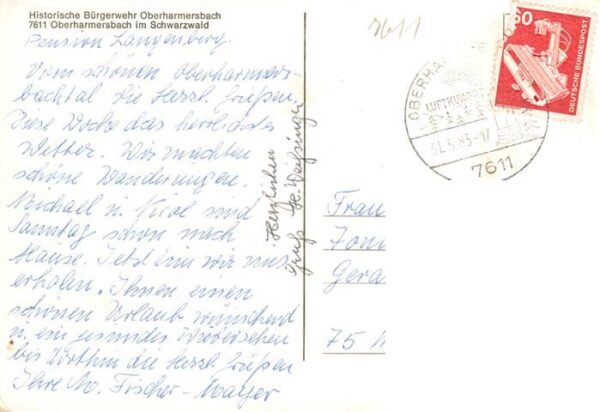 Historische Bürgerwehr Oberharmersbach
7611 Oberharmersbach im Schwarzwald
7611
Pension Langenberg.
Vom schönen Oberharmers-
bachtal die Herzl. Grüßen,
Diese Woche das herrlichste
Wetter. Wir machten
schöne Wanderungen.
Michael u. Nicol sind
Samstag schon nach
Hause. Jetzt tun wir uns
erholen. Ihnen einen
schönen Urlaub wünschend
u. ein gesundes Wiedersehen
bis dorthin die Herzl. Grüßen
Ihre M. Fischer-Mayer
Herzlichen
Gruß
60
DEUTSCHE BUNDESPOST
OBERHA
LUFTKURORT
31.5.83-17
7611
Frau
Gera
75